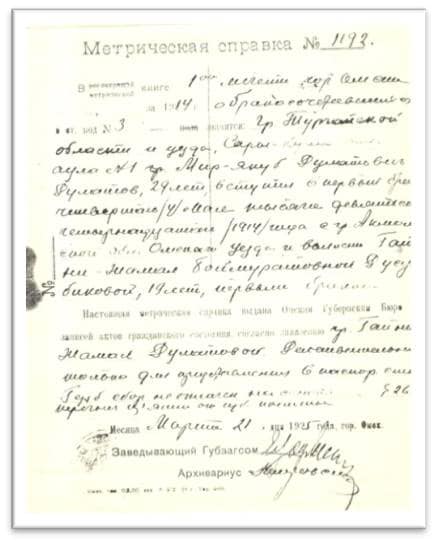 Метрическая справка № 1193.
В метрической книге 1ой мечети гор Омска
за 1914. о бракосочетавшихся
в ст. под № 3 — значится: гр Тургайской
области и уезда, Сары-
аула № 1 гр Мир-Якуб Дулатович
Дулатов, 29 лет, вступил в первый брак
четвертого /4/ мая тысяча девятьсот
четырнадцатого /1914/ года с гр Акмол
ской обл. Омского уезда и волости Гай
ни-Жамал Баймуратовной Досум
бековой, 19 лет, первым браком
Настоящая метрическая справка выдана Омским Губернским Бюро
записей актов гражданского состояния, согласно заявлению гр. Гайни
Жамал Дулатовой
только для предъявления в паспор. стол
Герб сбор § 26
Месяца Марта 21 дня 1925 года, гор. Омск.
Заведывающий Губзагсом
Архивариус